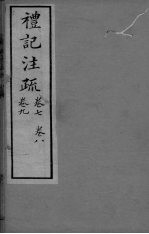 禮記注疏
卷七 卷八
卷九